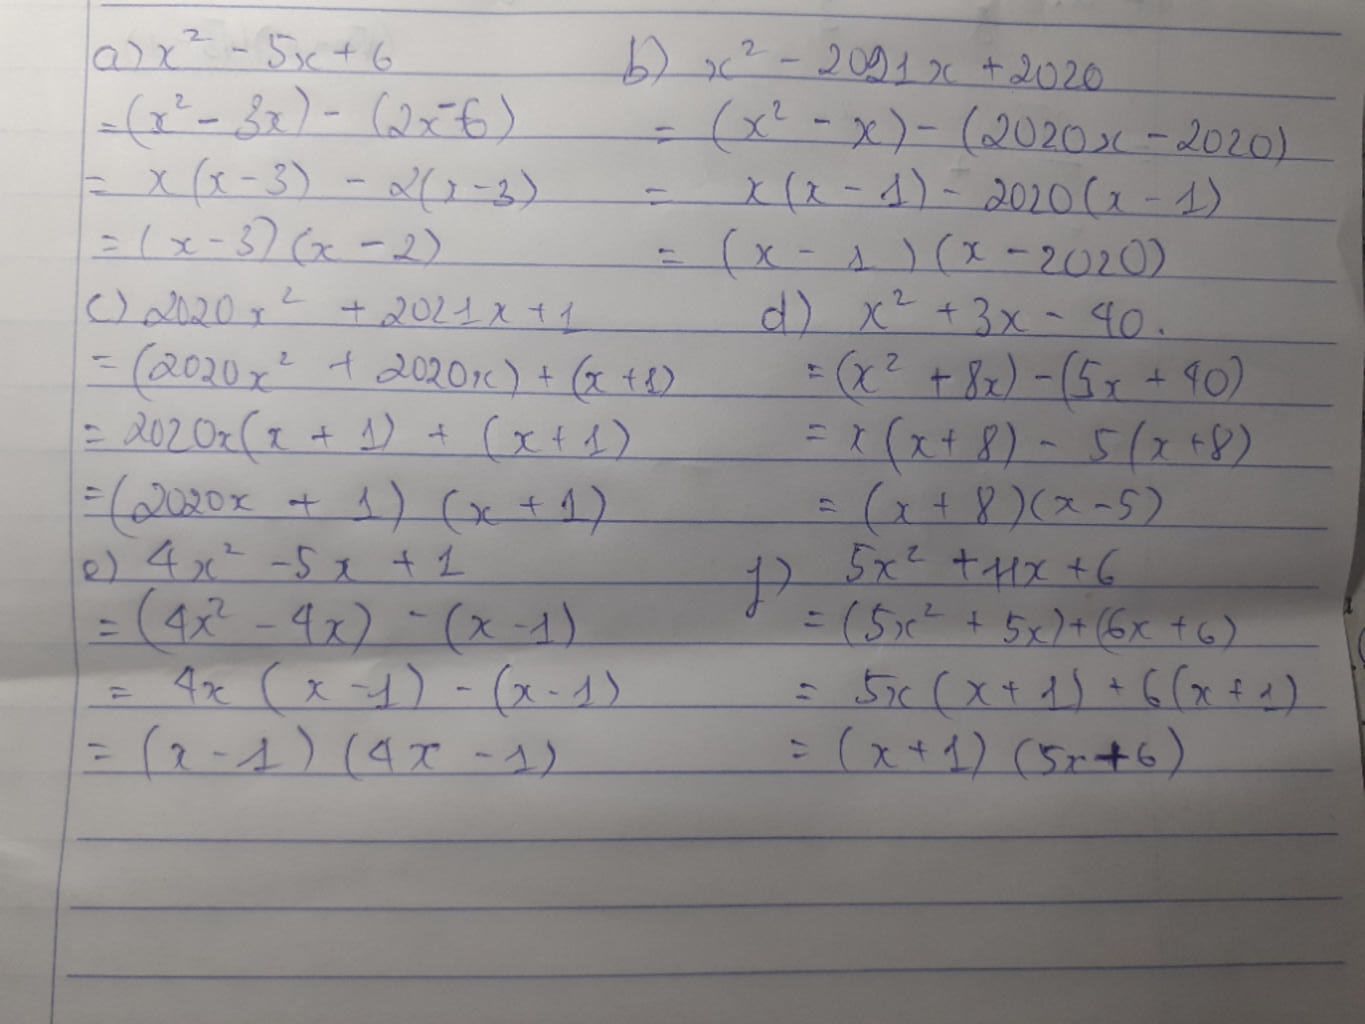 a) x² - 5x + 6
= (x² - 3x) - (2x - 6)
= x(x - 3) - 2(x - 3)
= (x - 3)(x - 2)
b) x² - 2021x + 2020
= (x² - x) - (2020x - 2020)
= x(x - 1) - 2020(x - 1)
= (x - 1)(x - 2020)
c) 2020x² + 2021x + 1
= (2020x² + 2020x) + (x + 1)
= 2020x(x + 1) + (x + 1)
= (2020x + 1)(x + 1)
d) x² + 3x - 40.
= (x² + 8x) - (5x + 40)
= x(x + 8) - 5(x + 8)
= (x + 8)(x - 5)
e) 4x² - 5x + 1
= (4x² - 4x) - (x - 1)
= 4x(x - 1) - (x - 1)
= (x - 1)(4x - 1)
f) 5x² + 11x + 6
= (5x² + 5x) + (6x + 6)
= 5x(x + 1) + 6(x + 1)
= (x + 1)(5x + 6)